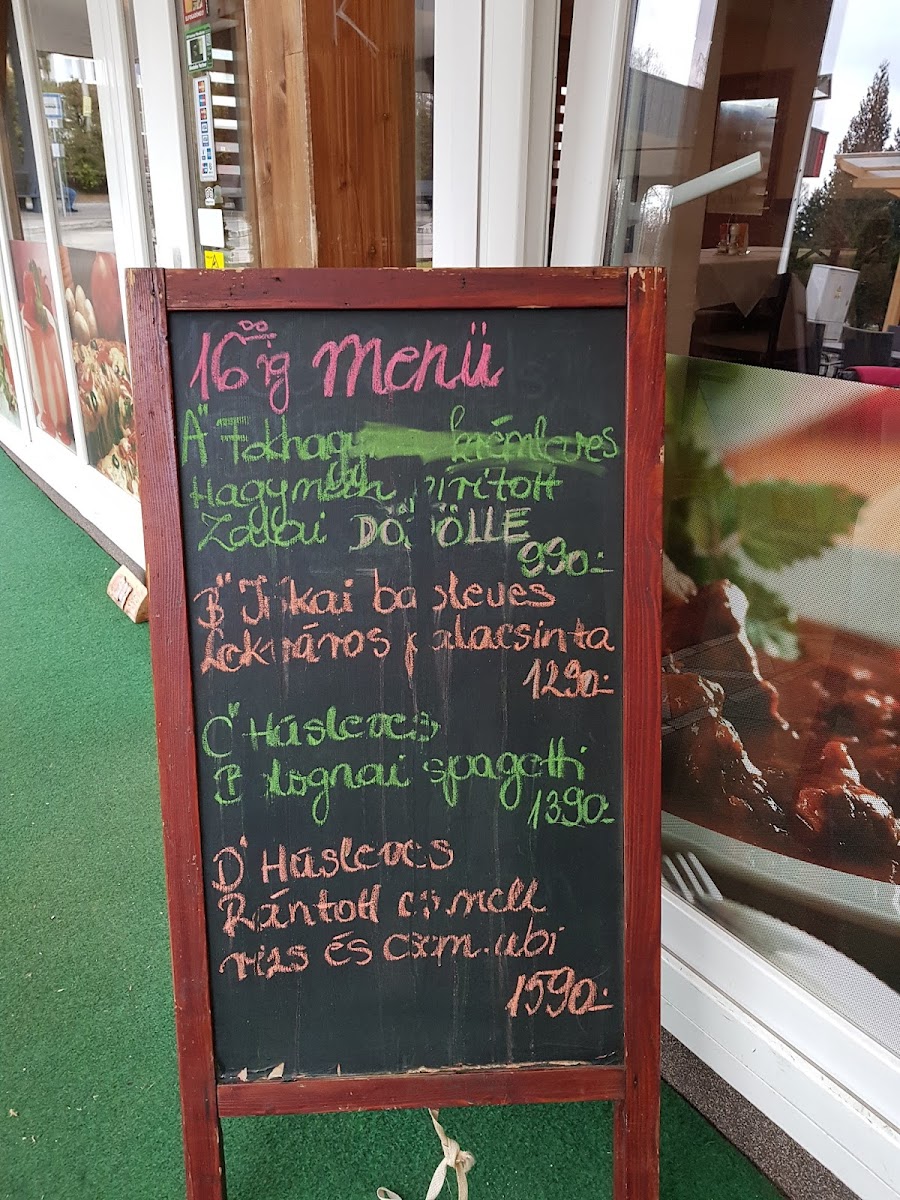 16⁰⁰ ig Menü
A" Fokhagy krémleves
Hagymán pirított
Zalai DÖDÖLLE
990.-
B" Jókai bableves
Lekváros palacsinta
1290.-
C" Húsleves
Bolognai spagetti
1390.-
D" Húsleves
Rántott csi.mell
rizs és csem.ubi
1590.-